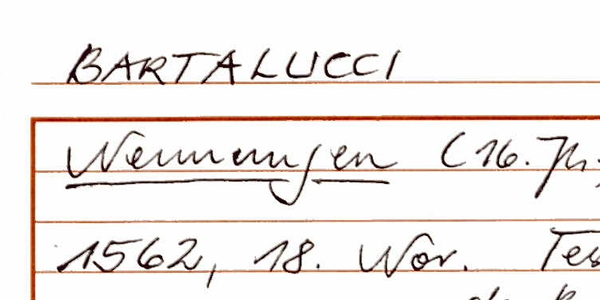 BARTALUCCI
Nennungen (16. Jh.
1562, 18. Nov. Tes